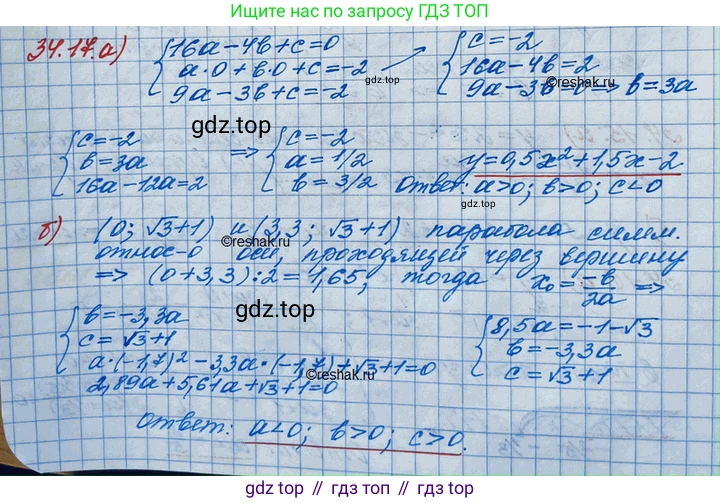 Ищите ответ по запросу ГДЗ ТОП
34.17.а) {16a-4b+c=0
a·0+b·0+c=-2
9a-3b+c=-2
{c=-2
16a-4b=2
9a-3b=0 => b=3a
gdz.top
©reshak.ru
{c=-2
b=3a
16a-12a=2
=> {c=-2
a=1/2
b=3/2
y=0,5x²+1,5x-2
Ответ: a>0; b>0; c<0
gdz.top
gdz.top
б) (0; √3+1) и (3,3; √3+1) парабола симм.
относ-о оси, проходящей через вершину
=> (0+3,3):2=1,65, тогда x₀=-b/2a =>
©reshak.ru
gdz.top
{b=-3,3a
c=√3+1
a·(-1,7)²-3,3a·(-1,7)+√3+1=0
2,89a+5,61a+√3+1=0
©reshak.ru
{8,5a=-1-√3
b=-3,3a
c=√3+1
Ответ: a<0; b>0; c>0.
©reshak.ru
gdz.top // gdz.top // gdz.top